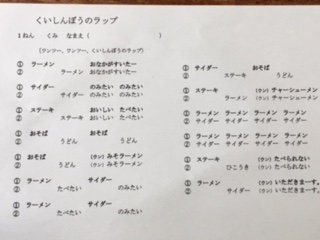 くいしんぼうのラップ
1ねん　くみ　なまえ（　　　　　　）
（ワンツー、ワンツー、くいしんぼうのラップ）
① ラーメン　　おなかがすいたー
②　　ラーメン　おなかがすいたー
① サイダー　　のみたい　のみたい
②　　サイダー　のみたい　のみたい
① ステーキ　　おいしい　たべたい
②　　ステーキ　おいしい　たべたい
① おそば　　　おそば
②　　うどん　　　うどん
① おそば　　（ウン）みそラーメン
②　　うどん　（ウン）みそラーメン
① ラーメン　　サイダー
②　　たべたい　　のみたい
① ラーメン　　サイダー
②　　たべたい　　のみたい
① サイダー　　おそば
②　　ステーキ　　うどん
① ステーキ　（ウン）チャーシューメン
②　　うどん　（ウン）チャーシューメン
① ラーメン　ラーメン　ラーメン　ラーメン
② サイダー　サイダー　サイダー　サイダー
① ラーメン　ラーメン　ラーメン　ラーメン
② サイダー　サイダー　サイダー　サイダー
① ステーキ　（ウン）たべられない
②　　ひこうき　（ウン）たべられない
① ラーメン　（ウン）いただきまーす。
②　　サイダー　（ウン）いただきまーす。